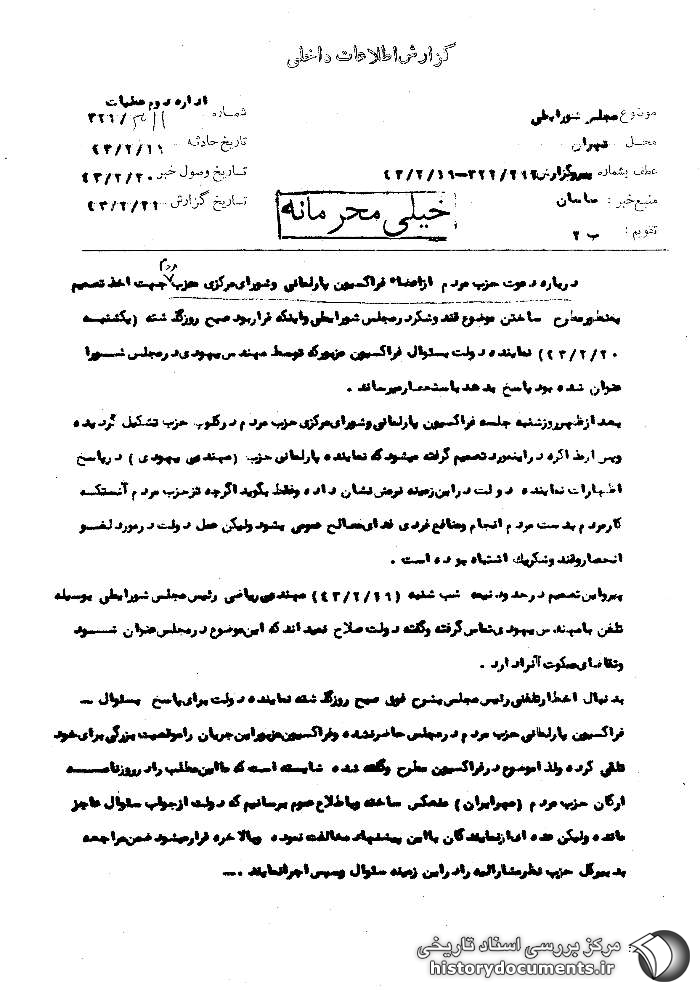 گزارش اطلاعات داخلی
اداره دوم عملیات
موضوع مجلس شورایملی
شماره ۳۲۱/
محل تهران
تاریخ حادثه ۴۳/۲/۱۹
عطف بشماره پیروگزارش ۳۲۱/۲۱۳-۴۳/۲/۱۹
تاریخ وصول خبر ۴۳/۲/۲۰
منبع خبر: ساسان
تاریخ گزارش ۴۳/۲/۲۱
تقویم: ب ۲
خیلی محرمانه
درباره دعوت حزب مردم ازاعضاء فراکسیون پارلمانی وشورای مرکزی حزب جهت اخذ تصمیم
بمنظورمطرح ساختن موضوع قندوشکردرمجلس شورایملی واینکه قراربود صبح روزگذشته (یکشنبه
۴۳/۲/۲۰) نماینده دولت بسئوال فراکسیون مزبورکه توسط مهندس بهبودی درمجلس شورا
عنوان شده بود پاسخ بدهد باستحضارمیرساند .
بعدازظهرروزشنبه جلسه فراکسیون پارلمانی وشورای مرکزی حزب مردم درکلوب حزب تشکیل گردیده
وپس ازمذاکره دراینمورد تصمیم گرفته میشود که نماینده پارلمانی حزب (مهندس بهبودی) درپاسخ
اظهارات نماینده دولت دراین زمینه نرمش نشان داده وفقط بگوید اگرچه تزحزب مردم آنستکه
کارمردم بدست مردم انجام ومنافع فردی فدای مصالح عمومی بشود ولیکن عمل دولت درمورد لغو
انحصارقند وشکریک اشتباه بوده است .
پیرواین تصمیم درحدود نیمه شب شنبه (۴۳/۲/۱۹) مهندس ریاضی رئیس مجلس شورایملی بوسیله
تلفن بامهندس بهبودی تماس گرفته وگفته دولت صلاح نمیداند که این موضوع درمجلس عنوان شود
وتقاضای سکوت آنرادارد .
بدنبال اخطارتلفنی رئیس مجلس بشرح فوق صبح روزگذشته نماینده دولت برای پاسخ بسئوال -
فراکسیون پارلمانی حزب مردم درمجلس حاضرنشده وفراکسیون مزبوراین جریان راموفقیت بزرگی برای خود
تلقی کرده ولذا موضوع درفراکسیون مطرح وگفته شده شایسته است که مااین مطلب رادرروزنامه
ارگان حزب مردم (مهرایران) منعکس ساخته وباطلاع عموم برسانیم که دولت ازجواب سئوال عاجز
مانده ولیکن عده ای ازنمایندگان بااین پیشنهاد مخالفت نموده وبالاخره قرارمیشود ضمن مراجعه
بدبیرکل حزب نظرمشارالیه رادراین زمینه سئوال وسپس اجرانمایند .-
مرکز بررسی اسناد تاریخی
historydocuments.ir